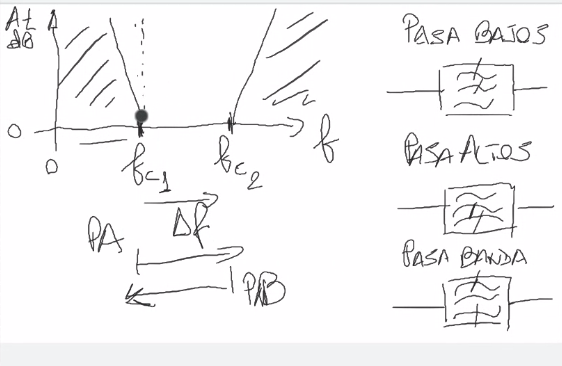 At
dB
0
0
fc1
fc2
f
Δf
PA
PAB
PASA BAJOS
PASA ALTOS
PASA BANDA